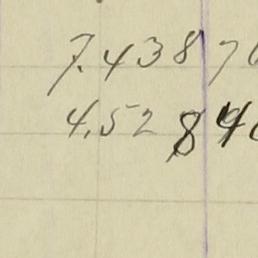 7.438 70
4.52 840